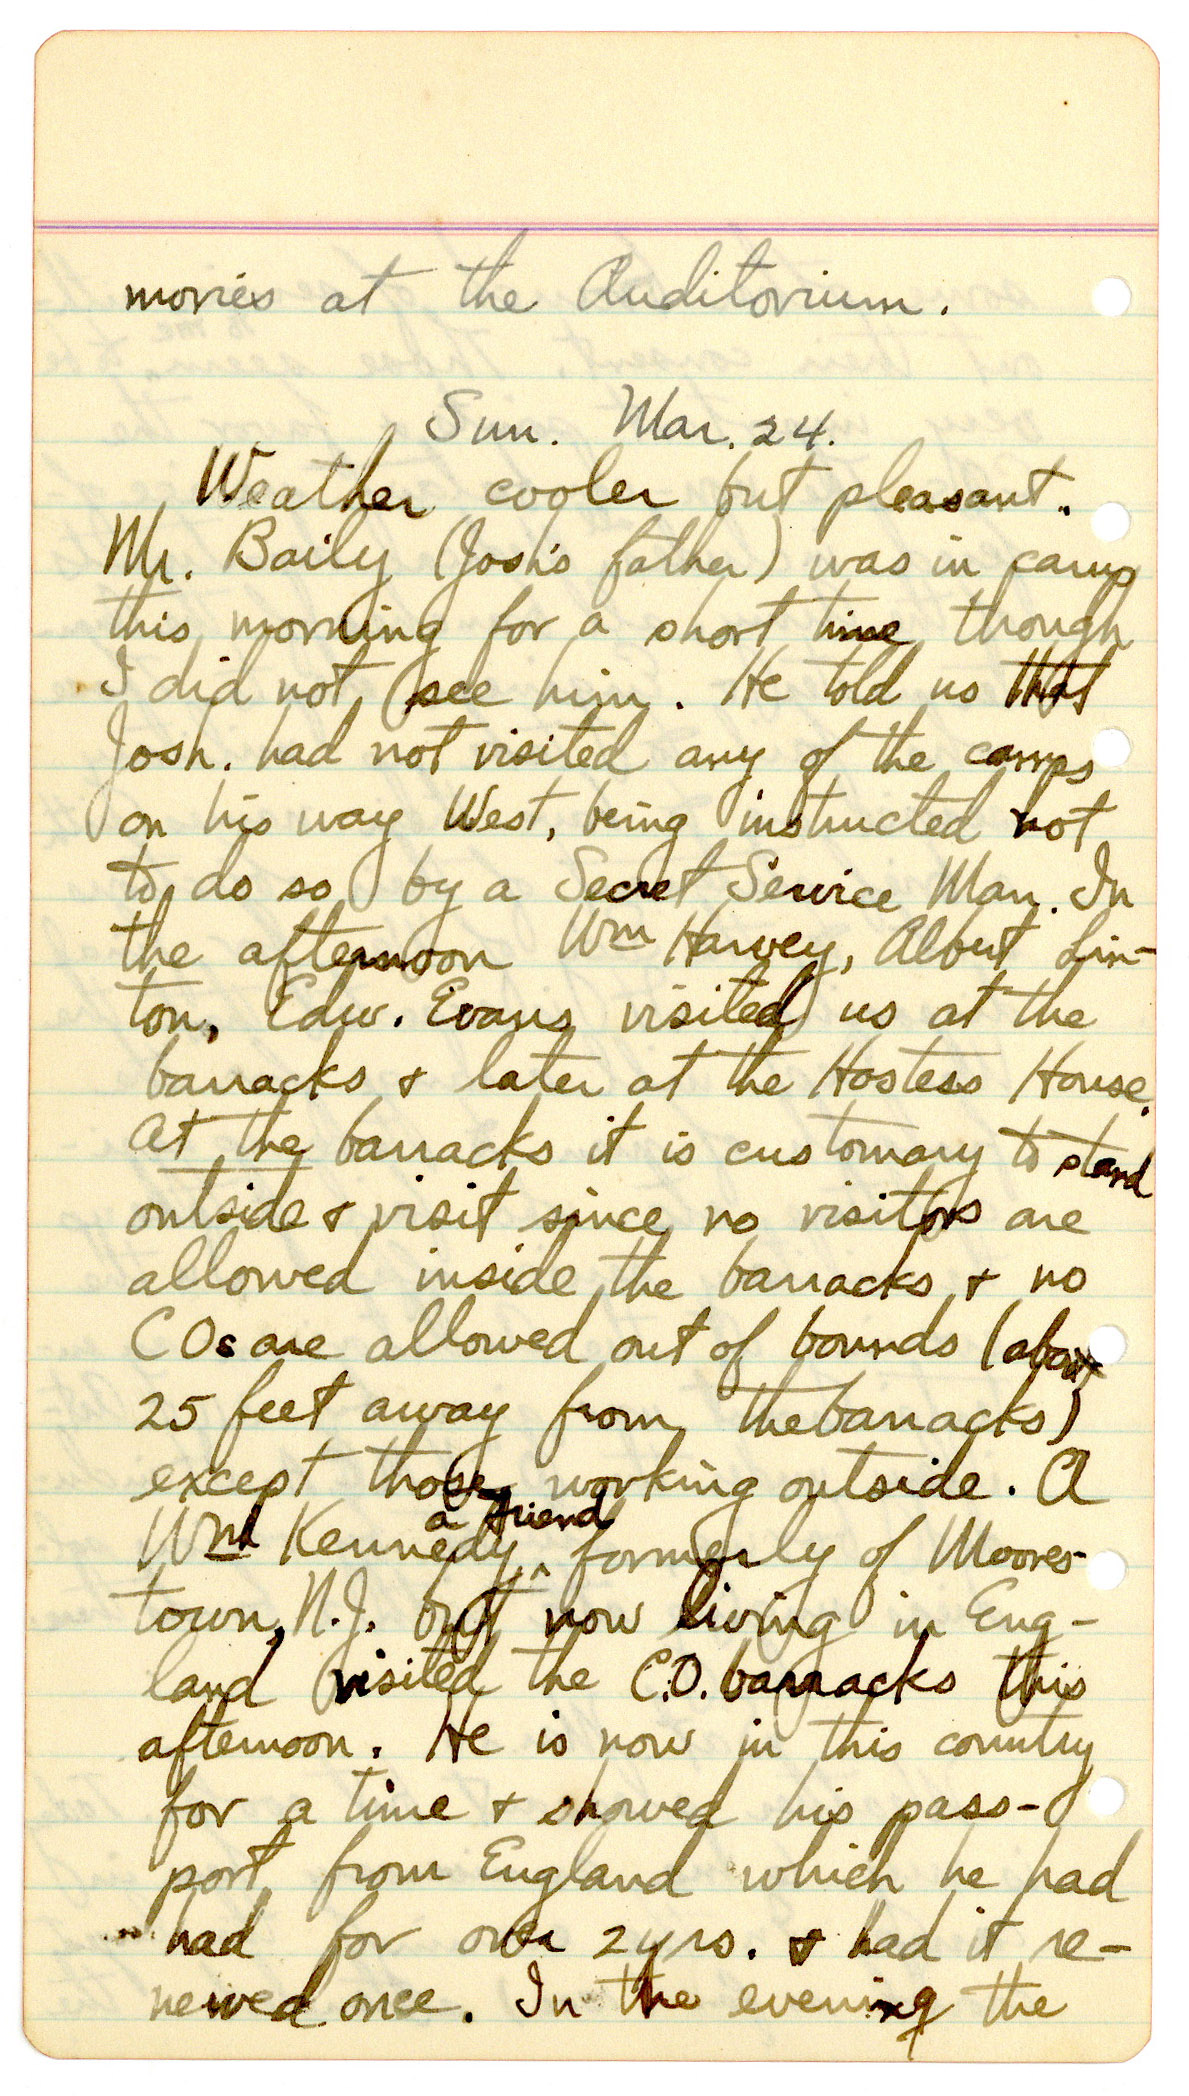 movies at the Auditorium.
Sun. Mar. 24.
Weather cooler but pleasant.
Mr. Baily (Josh's father) was in camp
this morning for a short time though
I did not see him. He told us that
Josh. had not visited any of the camps
on his way West, being instructed not
to do so by a Secret Service Man. In
the afternoon Wm Harvey, Albert Lin-
ton, Edw. Evans visited us at the
barracks & later at the Hostess House.
At the barracks it is customary to stand
outside & visit since no visitors are
allowed inside the barracks & no
COs are allowed out of bounds (about
25 feet away from the barracks)
except those working outside. A
a friend
Wm Kennedy ^ formerly of Moores-
town, N.J. but now living in Eng-
land visited the C.O. barracks this
afternoon. He is now in this country
for a time & showed his pass-
port from England which he had
had for over 2 yrs. & had it re-
newed once. In the evening the